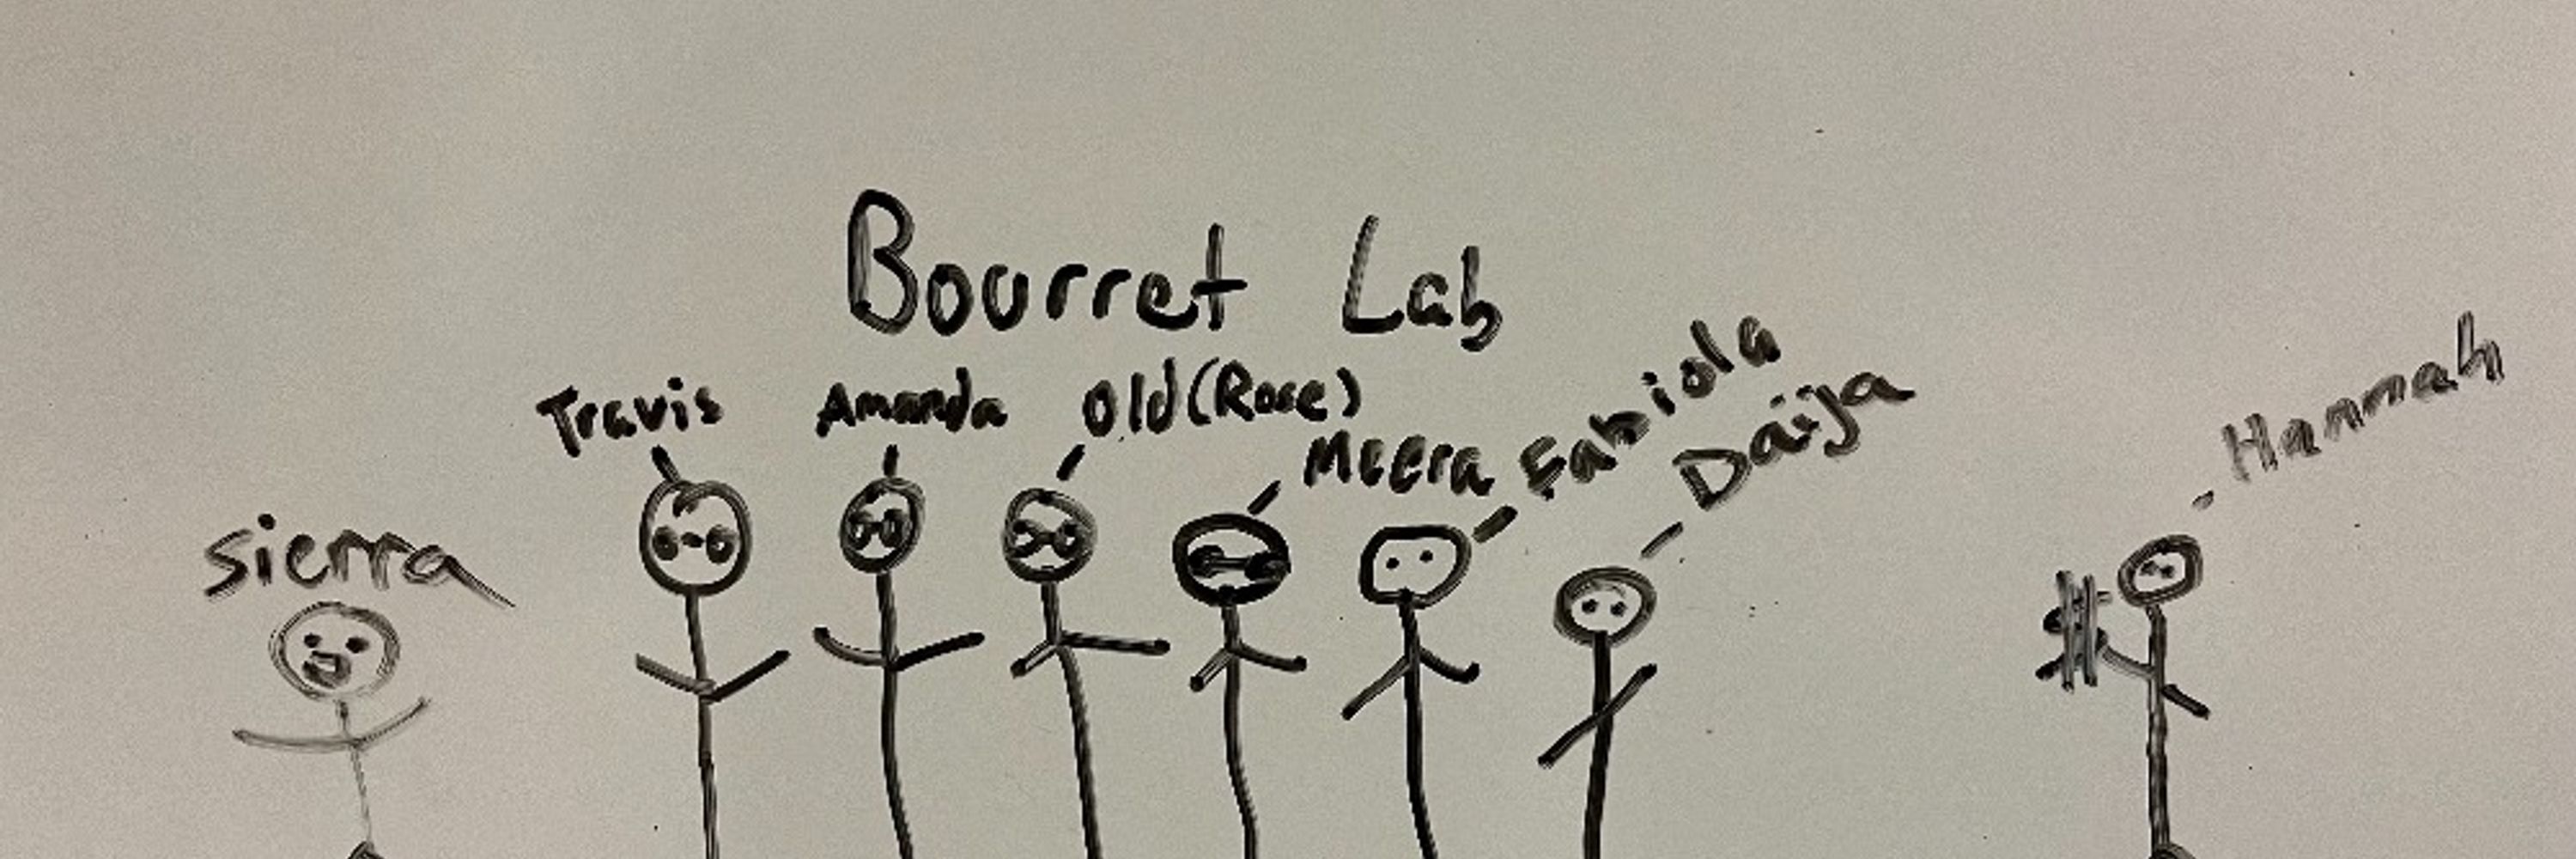 Bourret Lab
Travis Amanda Old (Rose)
Meera Fabiola
Daija
Hannah
Sierra